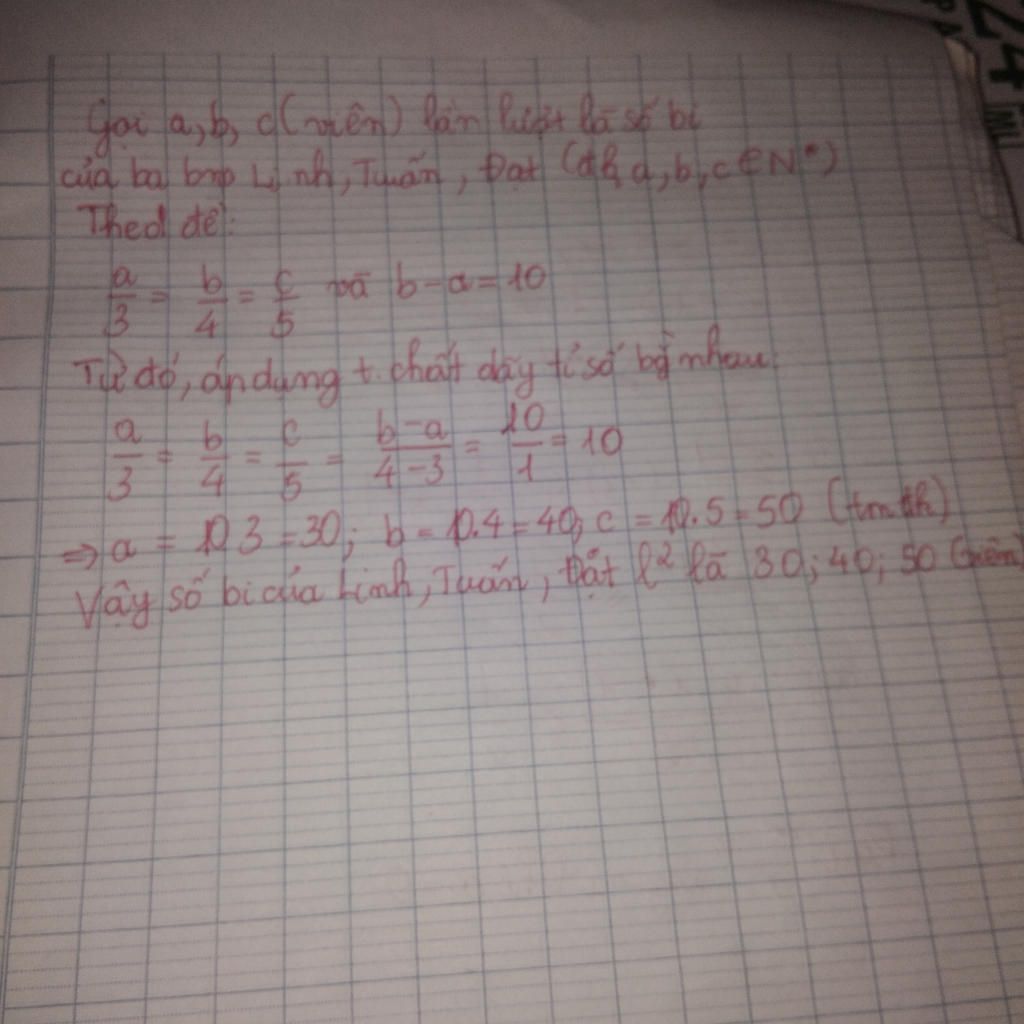 Gọi a, b, c (viên) lần lượt là số bi
của ba bạn Linh, Tuấn, Đạt (đk a, b, c ∈ N*)
Theo đề:
a/3 = b/4 = c/5 và b - a = 10
Từ đó, áp dụng t. chất dãy tỉ số bg nhau
a/3 = b/4 = c/5 = b-a/4-3 = 10/1 = 10
⇒ a = 10.3 = 30; b = 10.4 = 40; c = 10.5 = 50 (tm đk)
Vậy số bi của Linh, Tuấn, Đạt l² là 30; 40; 50 (viên)
24